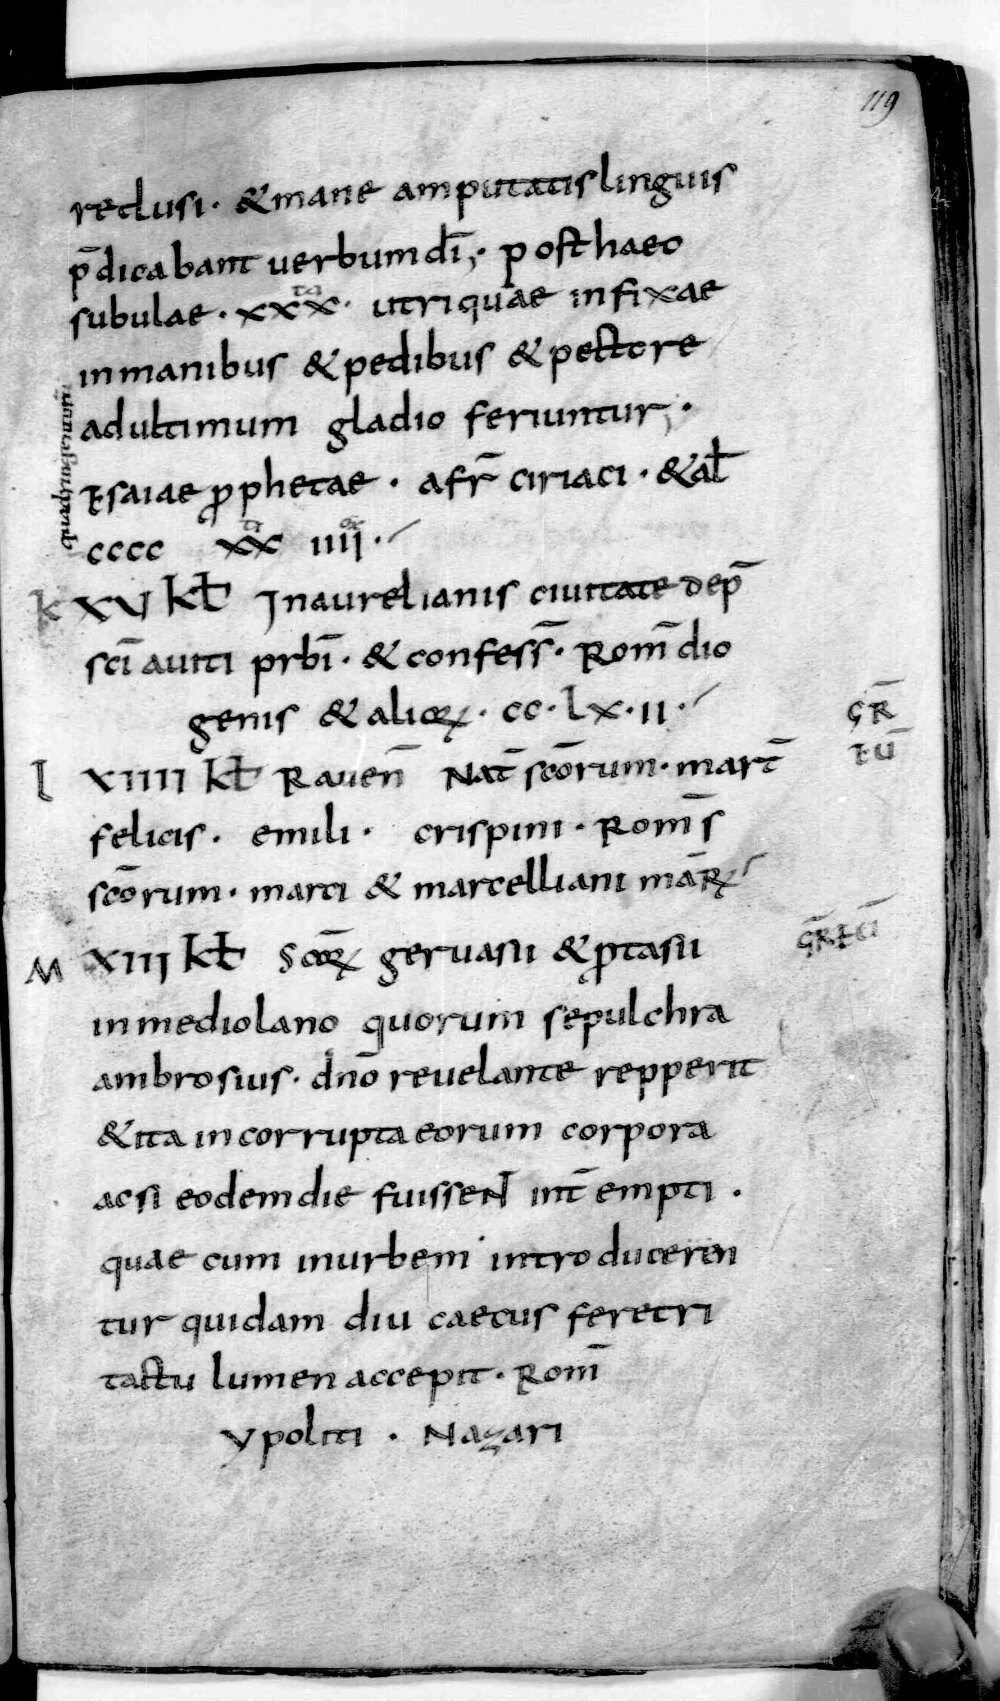 119
reclusi · & mane amputatis linguis
p̄dicabant uerbum dī; · post haec
subulae · xxx · utriquae infixae
in manibus & pedibus & pectore
ad ultimum gladio feriuntur; ·
Esaiae prophetae · afr̄ ciriaci · & al̄
cccc xx iiii ·
k XVI kł In aurelianis ciuitate dep̄
sc̄i auiti prb̄i · & confess̄ · Rom̄ dio
genis & alioꝝ · cc · l x · ii ·
GR̄
EŪ
l XIIII kł Rauen̄ Nat̄ sc̄orum · mart̄
felicis · emili · crispini · Rom̄ s̄
sc̄orum · marci & marcelliani mār̄ꝝ
M XIII kł Sc̄oꝝ geruasii & ꝓtasii
GR̄EŪ
in mediolano quorum sepulchra
ambrosius · dn̄o reuelante repperit
& ita incorrupta eorum corpora
acsi eodem die fuissent int̄empti ·
quae cum in urbem introduceren
tur quidam diu caecus feretri
tactu lumen accepit · Rom̄
ypoliti · Nazari